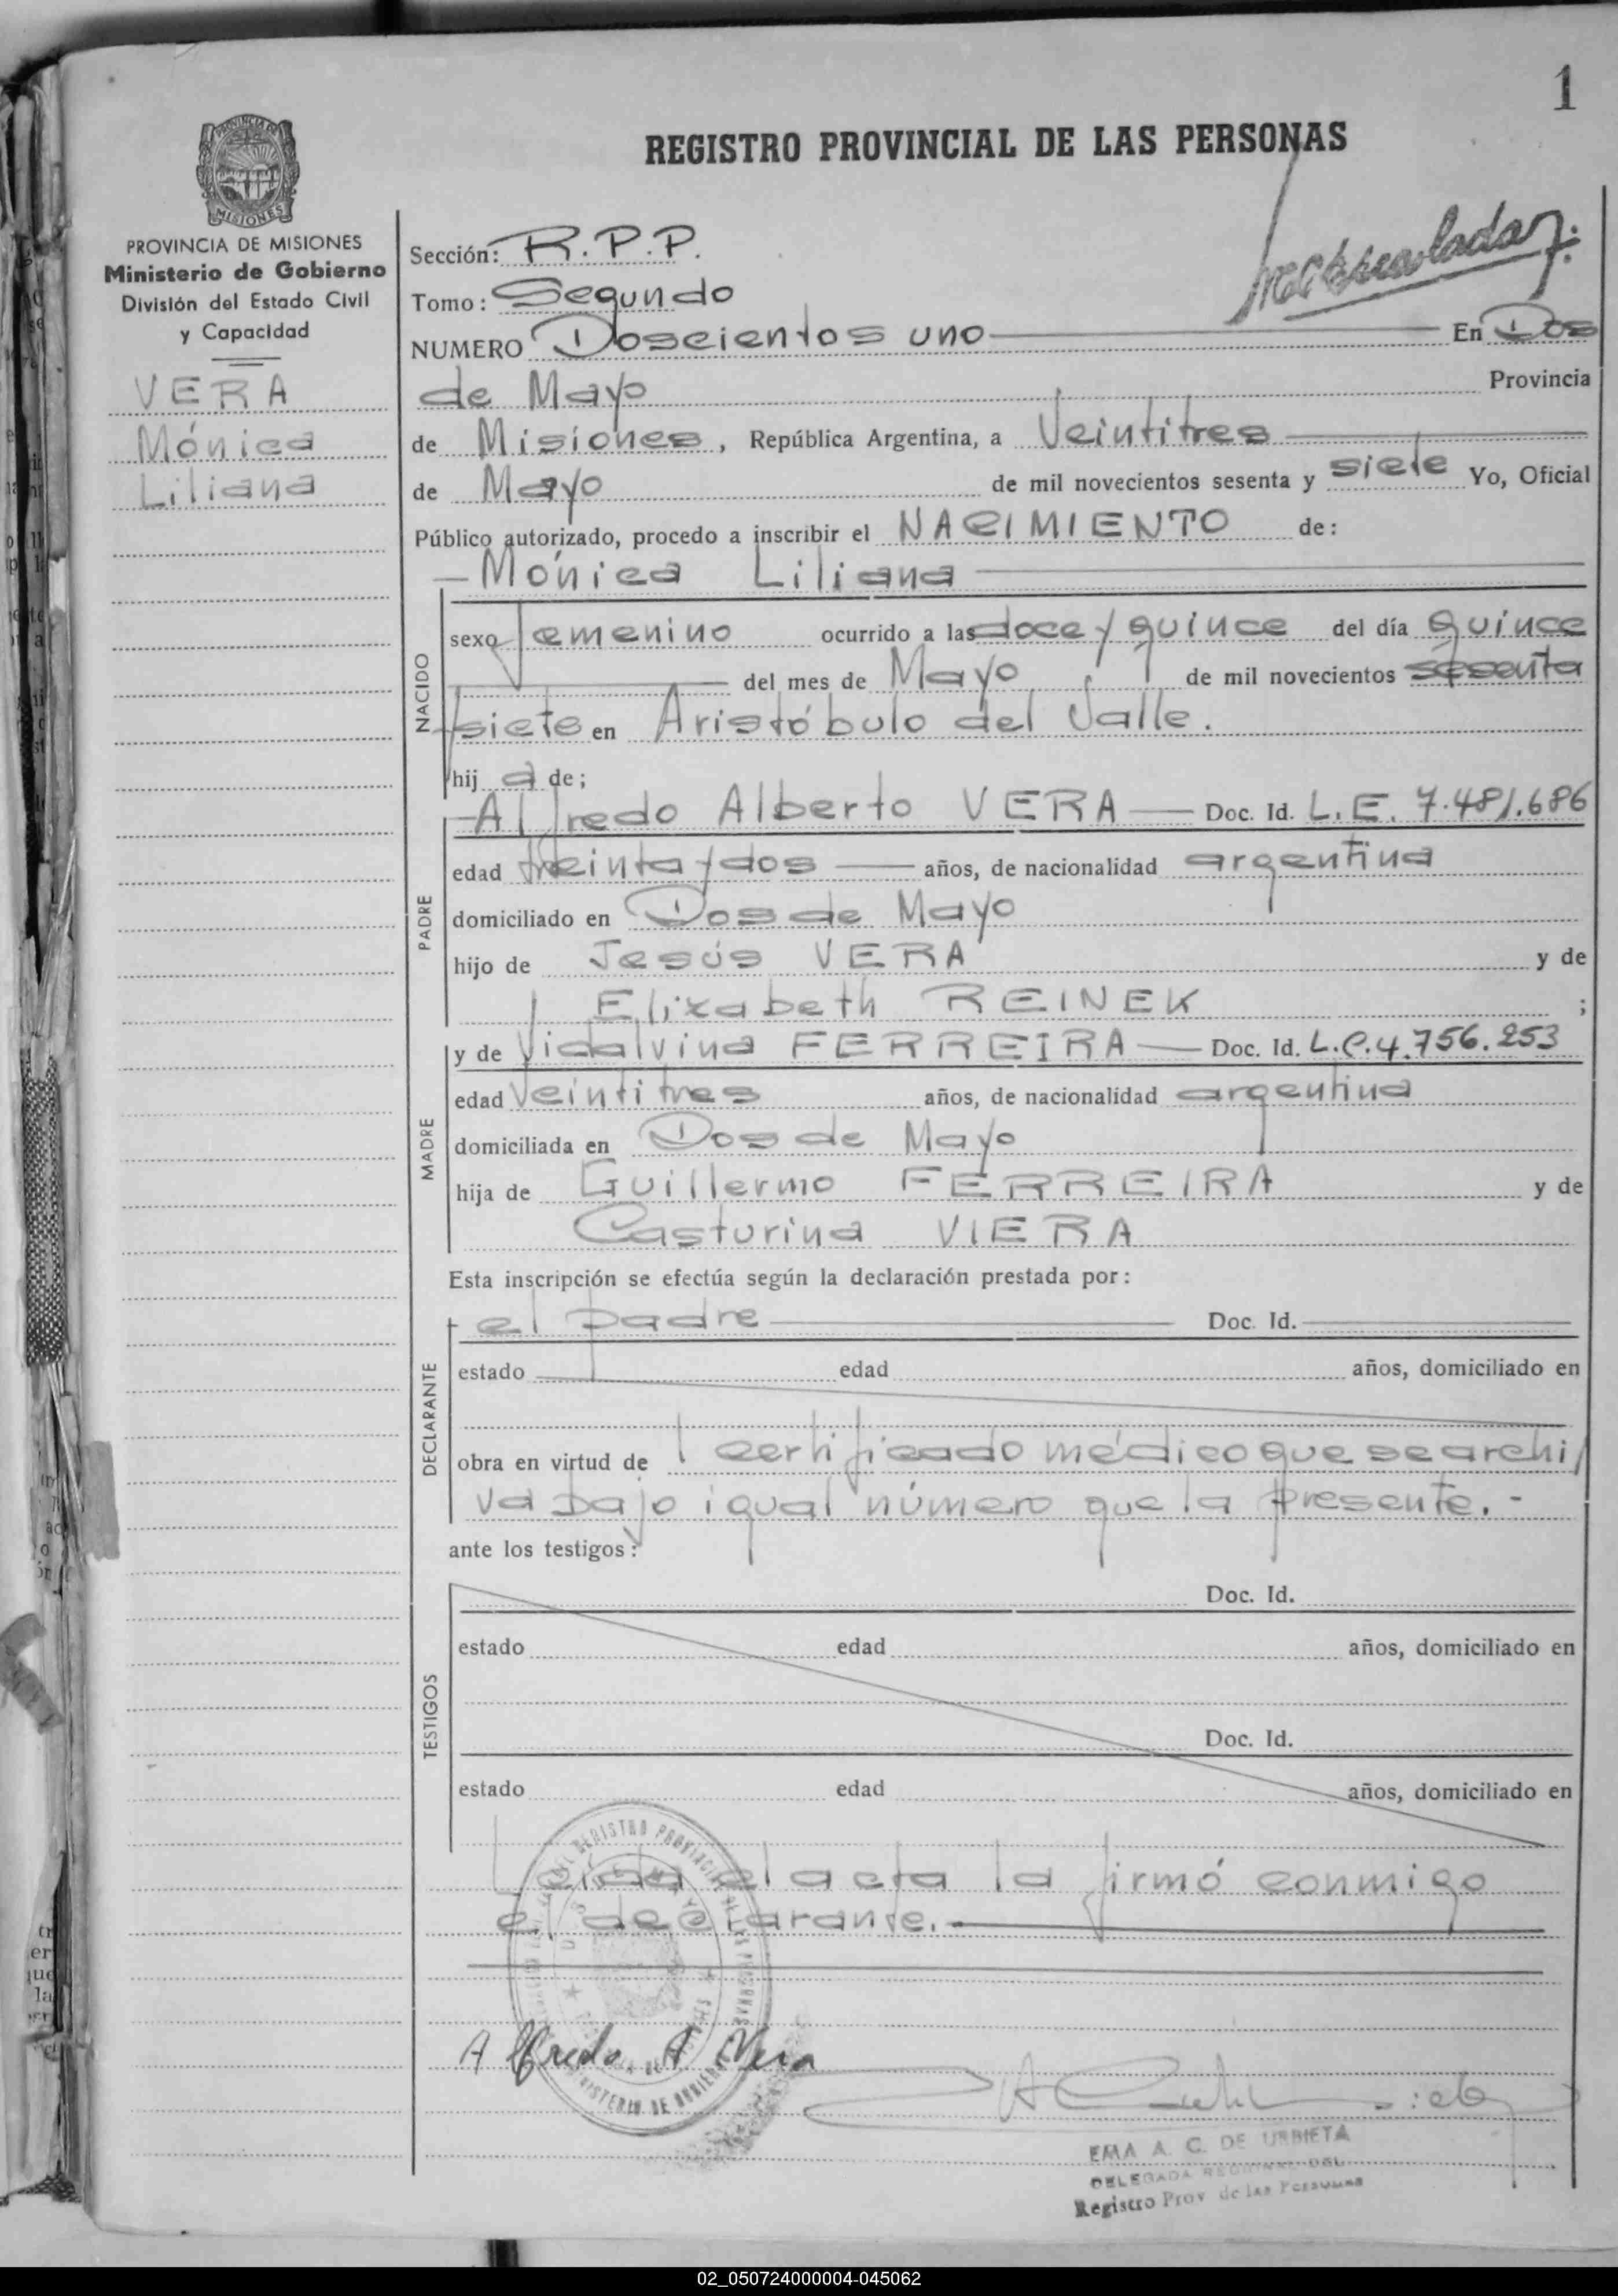 1
REGISTRO PROVINCIAL DE LAS PERSONAS
PROVINCIA DE
MISIONES
PROVINCIA DE MISIONES
Ministerio de Gobierno
División del Estado Civil
y Capacidad
VERA
Mónica
Liliana
Sección: R.P.P.
Tomo: Segundo
NUMERO Doscientos uno En Dos
de Mayo Provincia
de Misiones, República Argentina, a Veintitres
de Mayo de mil novecientos sesenta y siete Yo, Oficial
Público autorizado, procedo a inscribir el NACIMIENTO de:
Mónica Liliana
NACIDO
sexo femenino ocurrido a las doce y quince del día quince
del mes de Mayo de mil novecientos sesenta
y siete en Aristóbulo del Valle.
hij a de;
Alfredo Alberto VERA Doc. Id. L.E. 7.481.686
PADRE
edad treinta y dos años, de nacionalidad argentina
domiciliado en Dos de Mayo
hijo de Jesús VERA y de
Elizabeth REINEK ;
y de Vidalvina FERREIRA Doc. Id. L.C. 4.756.253
MADRE
edad Veintitres años, de nacionalidad argentina
domiciliada en Dos de Mayo
hija de Guillermo FERREIRA y de
Casturina VIERA
Esta inscripción se efectúa según la declaración prestada por:
el padre Doc. Id.
DECLARANTE
estado edad años, domiciliado en
obra en virtud de l certificado médico que se archi
va bajo igual número que la presente.-
ante los testigos:
TESTIGOS
Doc. Id.
estado edad años, domiciliado en
Doc. Id.
estado edad años, domiciliado en
Leída el acta la firmó conmigo
el declarante.
Alfredo A Vera
REGISTRO PROVINCIAL DE LAS PERSONAS
MINISTERIO DE GOBIERNO
EMA A. C. DE URBIETA
DELEGADA REGIONAL DEL
Registro Prov de las Personas
02_050724000004-045062